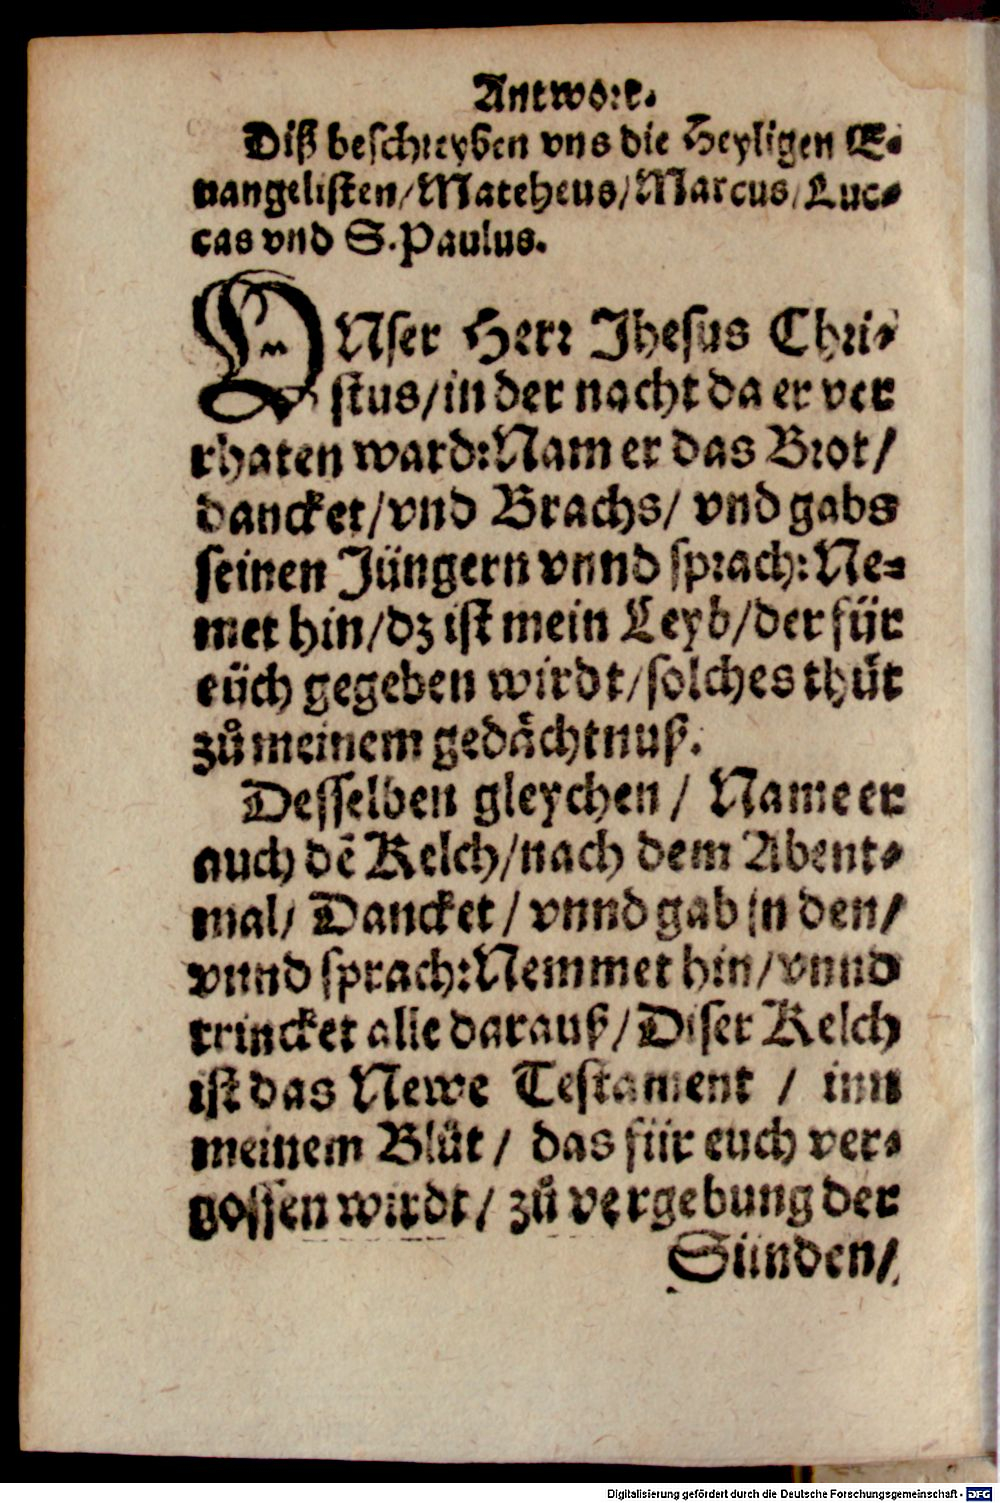 Antwort.
Diß beschreyben vns die Heyligen E-
uangelisten/Mattheus/Marcus/Luc-
cas vnd S. Paulus.
VNser Herr Jhesus Chri-
stus/in der nacht da er ver
rhaten ward: Nam er das Brot/
dancket/vnd Brachs/ vnd gabs
seinen Jüngern vnnd sprach: Ne-
met hin/dz ist mein Leyb/der für
eüch gegeben wirdt/solches thůt
zů meinem gedåchtnuß.
Desselben gleychen / Name er
auch dē Kelch/nach dem Abent-
mal/ Dancket / vnnd gab jn den/
vnnd sprach: Nemmet hin/vnnd
trincket alle darauß/Diser Kelch
ist das Newe Testament / inn
meinem Blůt / das für euch ver-
gossen wirdt/ zů vergebung der
Sünden/
Digitalisierung gefördert durch die Deutsche Forschungsgemeinschaft - DFG